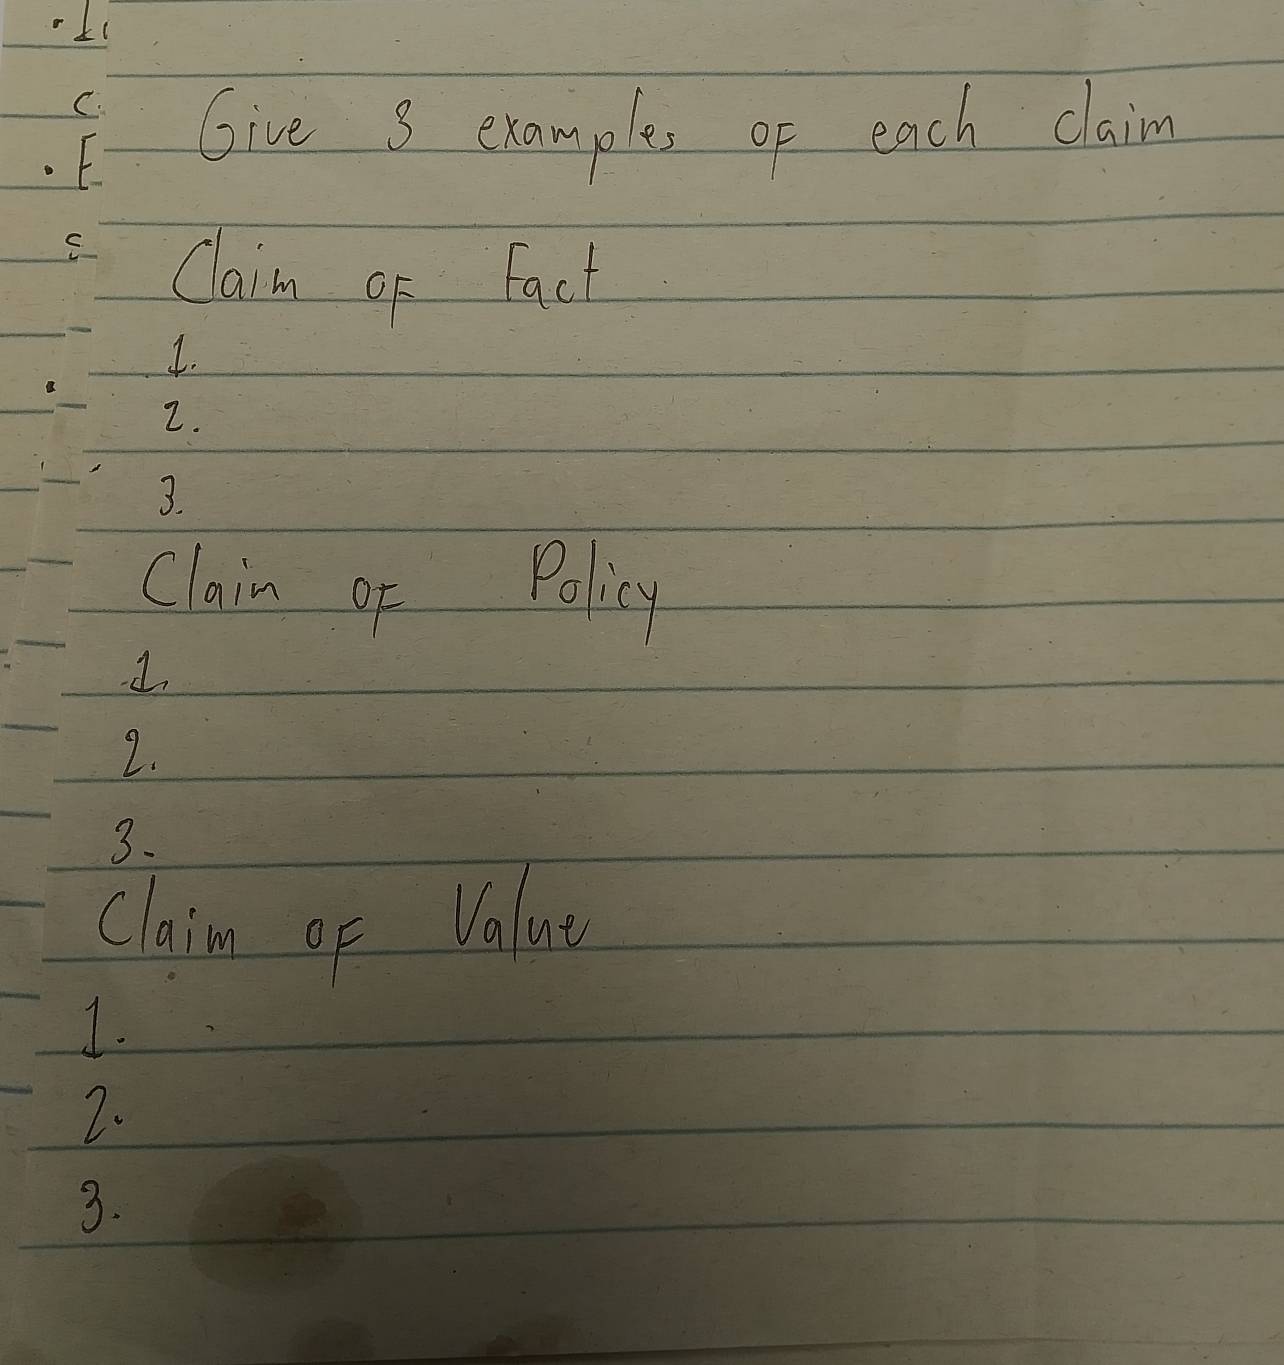 Give 3 examples of each claim
Claim of Fact
1.
2.
3.
Claim of Policy
1.
2.
3.
Claim of Value
1.
2.
3.